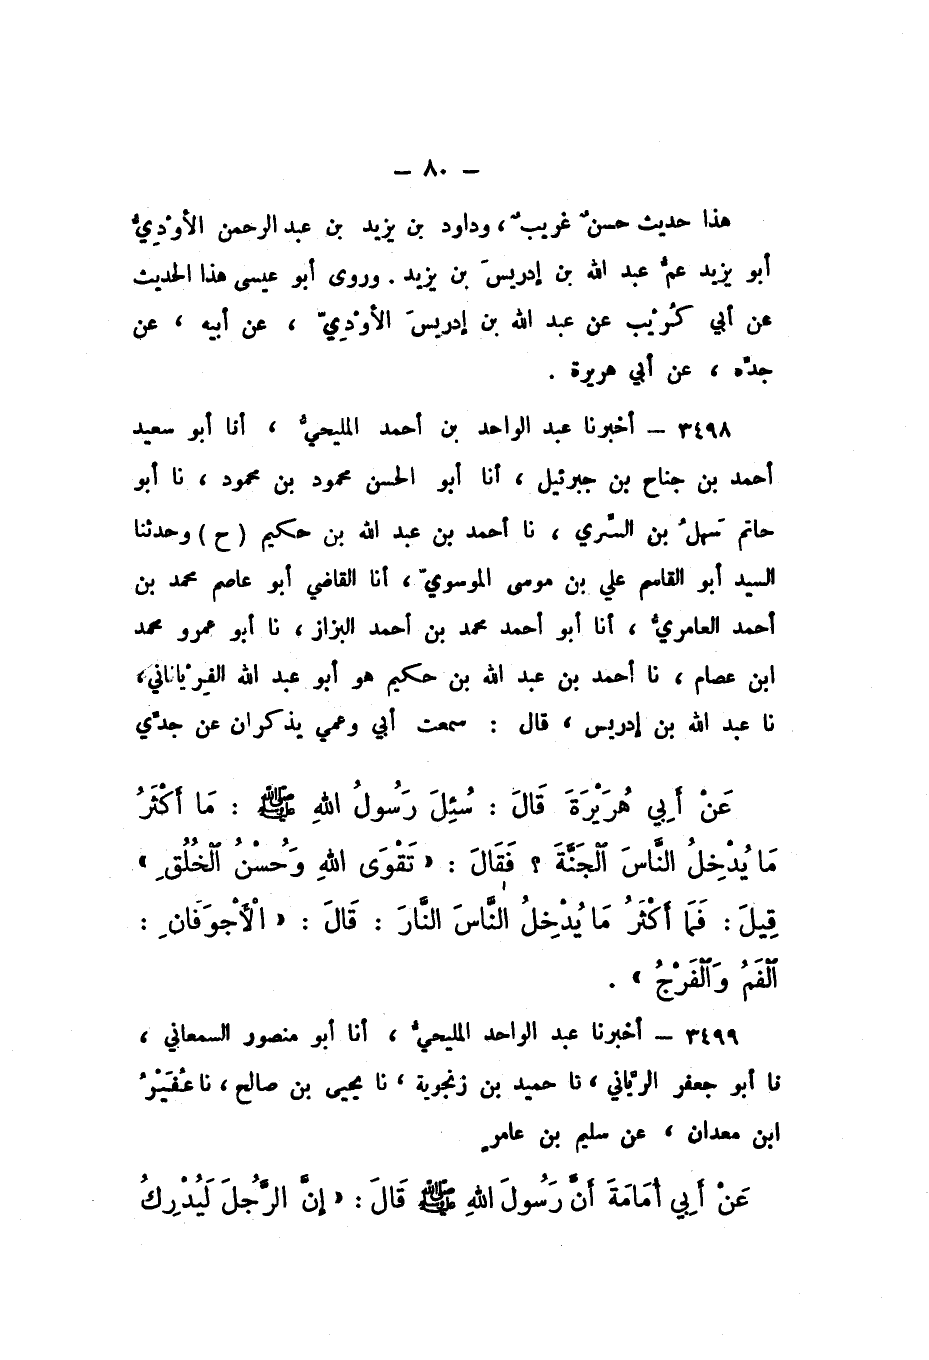 — ٨٠ —
هذا حديث حسنٌ غريبٌ، وداود بن يزيد بن عبد الرحمن الأوْديُّ
أبو يزيد عمُّ عبد الله بن إدريسَ بن يزيد . وروى أبو عيسى هذا الحديث
عن أبي كُرَيْب عن عبد الله بن إدريسَ الأوْدِيّ ، عن أبيه ، عن
جدّه ، عن أبي هريرة .
٣٤٩٨ — أخبرنا عبد الواحد بن أحمد المليحيُّ ، أنا أبو سعيد
أحمد بن جناح بن جبرئيل ، أنا أبو الحسن محمود بن محمود ، نا أبو
حاتم سَهلُ بن السَّري ، نا أحمد بن عبد الله بن حكيم ( ح ) وحدثنا
السيد أبو القاسم علي بن موسى الموسويّ ، أنا القاضي أبو عاصم محمد بن
أحمد العامريُّ ، أنا أبو أحمد محمد بن أحمد البزاز ، نا أبو عمرو محمد
ابن عصام ، نا أحمد بن عبد الله بن حكيم هو أبو عبد الله الفِرْياناني ،
نا عبد الله بن إدريس ، قال : سمعت أبي وعمي يذكران عن جدّي
عَنْ أَبِي هُرَيْرَةَ قَالَ : سُئِلَ رَسُولُ اللهِ ﷺ : مَا أَكْثَرُ
مَا يُدْخِلُ النَّاسَ ٱلْجَنَّةَ ؟ فَقَالَ : « تَقْوَى اللهِ وَحُسْنُ ٱلْخُلُقِ »
قِيلَ : فَمَا أَكْثَرُ مَا يُدْخِلُ النَّاسَ النَّارَ : قَالَ : « الْأَجْوَفَانِ :
ٱلْفَمُ وَٱلْفَرْجُ » .
٣٤٩٩ — أخبرنا عبد الواحد المليحيُّ ، أنا أبو منصور السمعاني ،
نا أبو جعفر الرَّياني ، نا حميد بن زنجوية ، نا يحيى بن صالح ، نا عُفَيْرُ
ابن معدان ، عن سليم بن عامرٍ
عَنْ أَبِي أُمَامَةَ أَنَّ رَسُولَ اللهِ ﷺ قَالَ : « إِنَّ الرَّجُلَ لَيُدْرِكُ